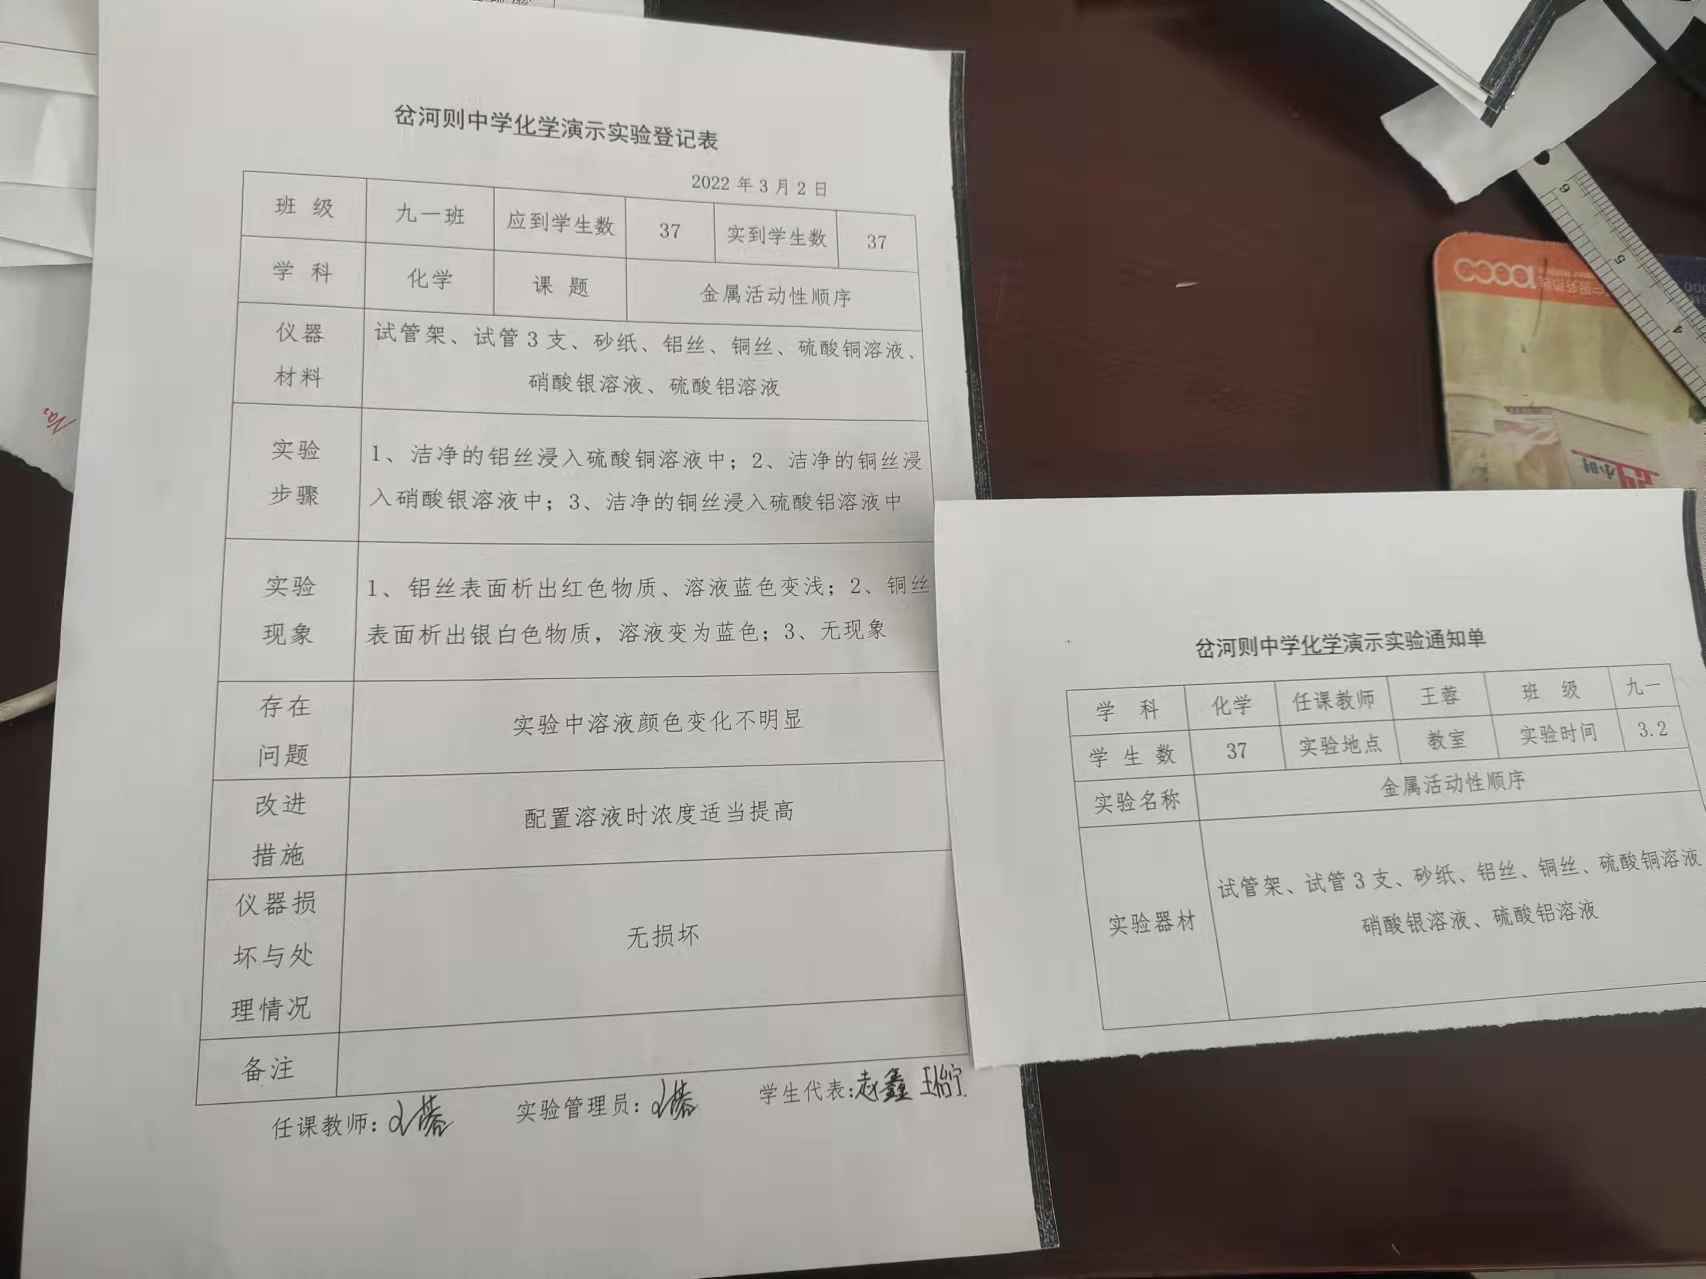 岔河则中学化学演示实验登记表
2022 年 3 月 2 日
班 级 九一班 应到学生数 37 实到学生数 37
学 科 化学 课 题 金属活动性顺序
仪器
材料
试管架、试管 3 支、砂纸、铝丝、铜丝、硫酸铜溶液、
硝酸银溶液、硫酸铝溶液
实验
步骤
1、洁净的铝丝浸入硫酸铜溶液中；2、洁净的铜丝浸
入硝酸银溶液中；3、洁净的铜丝浸入硫酸铝溶液中
实验
现象
1、铝丝表面析出红色物质、溶液蓝色变浅；2、铜丝
表面析出银白色物质，溶液变为蓝色；3、无现象
存在
问题
实验中溶液颜色变化不明显
改进
措施
配置溶液时浓度适当提高
仪器损
坏与处
理情况
无损坏
备注
任课教师: 实验管理员: 学生代表:赵鑫
岔河则中学化学演示实验通知单
学 科 化学 任课教师 王蓉 班 级 九一
学 生 数 37 实验地点 教室 实验时间 3.2
实验名称 金属活动性顺序
实验器材
试管架、试管 3 支、砂纸、铝丝、铜丝、硫酸铜溶液
硝酸银溶液、硫酸铝溶液
10000
小时
6
5
4